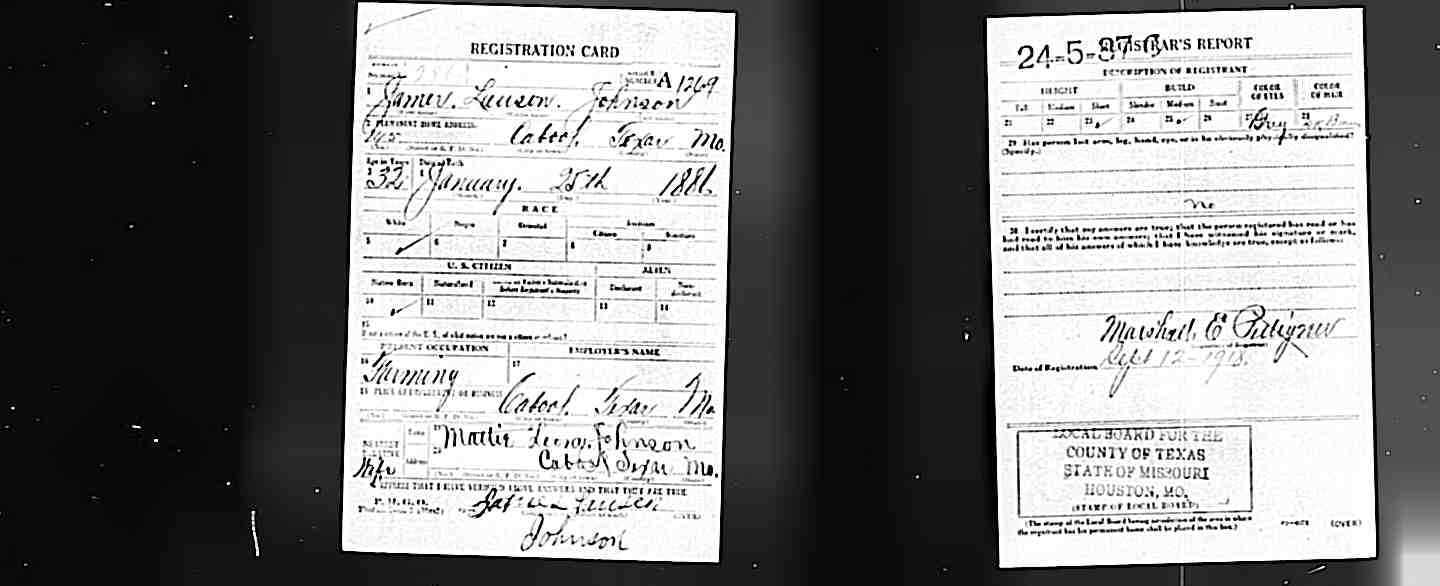 REGISTRATION CARD
A1269
James. Leuson. Johnson
2 PERMANENT HOME ADDRESS:
Cabool. Texas Mo.
Age in Years Date of Birth
32 January. 25th 1886
RACE
White Negro Oriental Indian
Citizen
5 6 7 8 9
U. S. CITIZEN ALIEN
Native Born Naturalized Declarant Non-declarant
10 11 12 13 14
15
PRESENT OCCUPATION EMPLOYER'S NAME
16 17
Farming
Cabool. Texas Mo
NEAREST RELATIVE
Name
19 Mattie Johnson
Address
20
Wife
Cabool Texas Mo.
I AFFIRM THAT I HAVE VERIFIED ABOVE ANSWERS AND THAT THEY ARE TRUE
James Leuson
Johnson
(OVER)
24-5-37 C
REGISTRAR'S REPORT
DESCRIPTION OF REGISTRANT
HEIGHT BUILD COLOR OF EYES COLOR OF HAIR
Tall Medium Short Slender Medium Stout
21 22 23 24 25 26 27 28
29 Has person lost arm, leg, hand, eye, or is he obviously physically disqualified?
(Specify.)
no
30 I certify that my answers are true; that the person registered has read or has
had read to him his own answers; that I have witnessed his signature or mark,
and that all of his answers of which I have knowledge are true, except as follows:
Marshall E
Date of Registration Sept 12-1918.
LOCAL BOARD FOR THE
COUNTY OF TEXAS
STATE OF MISSOURI
HOUSTON, MO.
(STAMP OF LOCAL BOARD)
(The stamp of the Local Board having jurisdiction of the area in which
the registrant has his permanent home shall be placed in this box.)
(OVER)